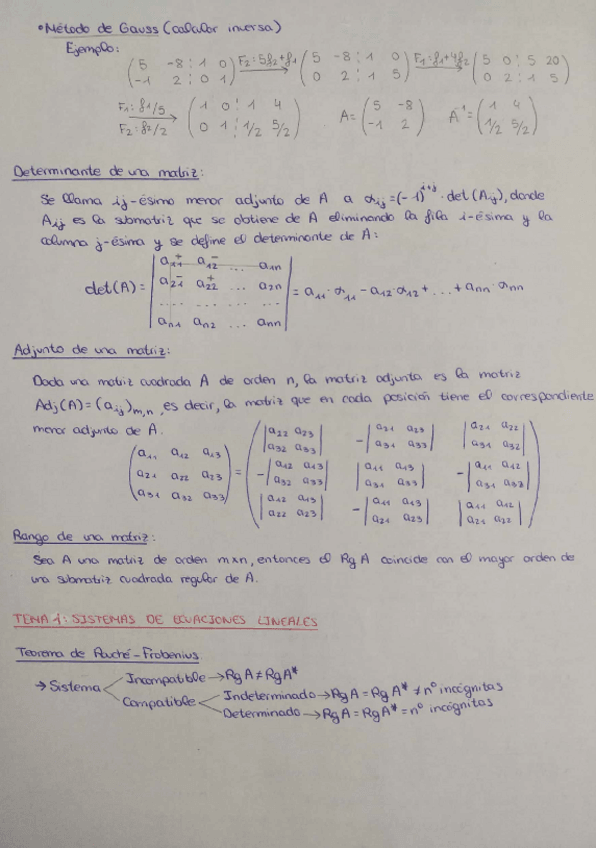 • Método de Gauss (calcular inversa)
Ejemplo:
( 5 -8 ⋮ 1 0 ) F₂: 5f₂+f₁ → ( 5 -8 ⋮ 1 0 ) F₁: f₁+4f₂ → ( 5 0 ⋮ 5 20 )
( -1 2 ⋮ 0 1 ) ( 0 2 ⋮ 1 5 ) ( 0 2 ⋮ 1 5 )
F₁: f₁/5 → ( 1 0 ⋮ 1 4 ) A = ( 5 -8 ) A⁻¹ = ( 1 4 )
F₂: f₂/2 ( 0 1 ⋮ 1/2 5/2 ) ( -1 2 ) ( 1/2 5/2 )
Determinante de una matriz:
Se llama ij-ésimo menor adjunto de A a αij = (-1)^(i+j) · det(Aij), donde
Aij es la submatriz que se obtiene de A eliminando la fila i-ésima y la
columna j-ésima y se define el determinante de A:
| a11⁺ a12⁻ ... a1n |
det(A) = | a21⁻ a22⁺ ... a2n | = a11·α11 - a12·α12 + ... + ann·αnn
| ... ... ... ... |
| an1 an2 ... ann |
Adjunto de una matriz:
Dada una matriz cuadrada A de orden n, la matriz adjunta es la matriz
Adj(A) = (aij)m,n, es decir, la matriz que en cada posición tiene el correspondiente
menor adjunto de A.
( a11 a12 a13 ) = ( |a22 a23| -|a21 a23| |a21 a22| )
( |a32 a33| |a31 a33| |a31 a32| )
( a21 a22 a23 ) ( -|a12 a13| |a11 a13| -|a11 a12| )
( |a32 a33| |a31 a33| |a31 a32| )
( a31 a32 a33 ) ( |a12 a13| -|a11 a13| |a11 a12| )
( |a22 a23| |a21 a23| |a21 a22| )
Rango de una matriz:
Sea A una matriz de orden m×n, entonces el Rg A coincide con el mayor orden de
una submatriz cuadrada regular de A.
TEMA 1: SISTEMAS DE ECUACIONES LINEALES
Teorema de Rouché-Frobenius
Incompatible → Rg A ≠ Rg A*
→ Sistema
Compatible
Indeterminado → Rg A = Rg A* ≠ nº incógnitas
Determinado → Rg A = Rg A* = nº incógnitas